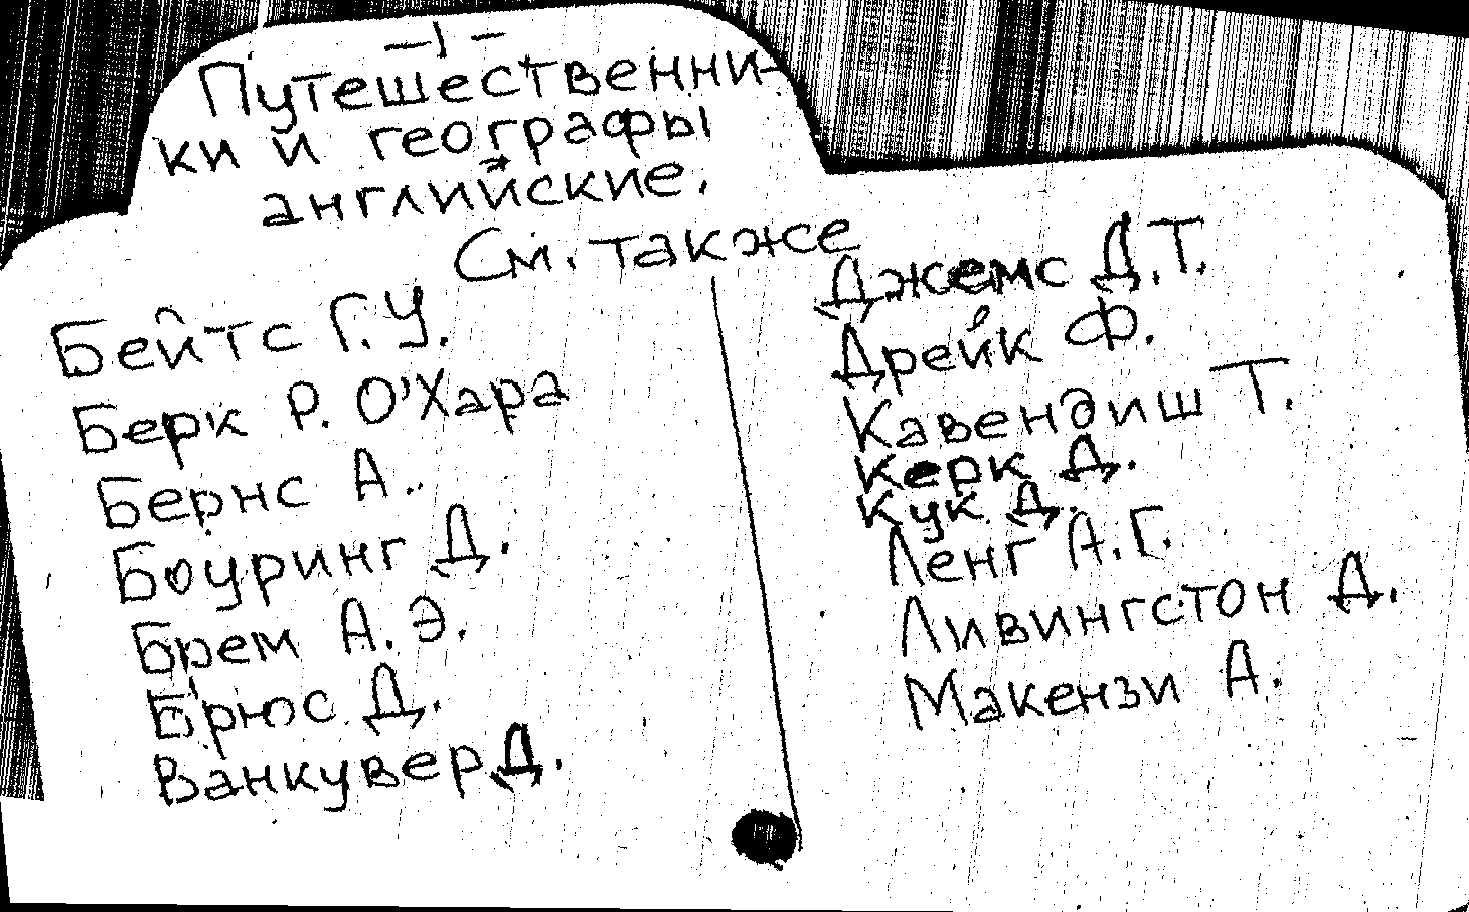 – 1 –
Путешественни-
ки и географы
английские.
См. также
Бейтс Г.У.
Берк Р. О'Хара
Бернс А..
Боуринг Д.
Брем А. Э.
Брюс Д.
Ванкувер Д.
Джемс Д.Т.
Дрейк Ф.
Кавендиш Т.
Керк Д.
Кук Д.
Ленг А.Г.
Ливингстон Д.
Макензи А.